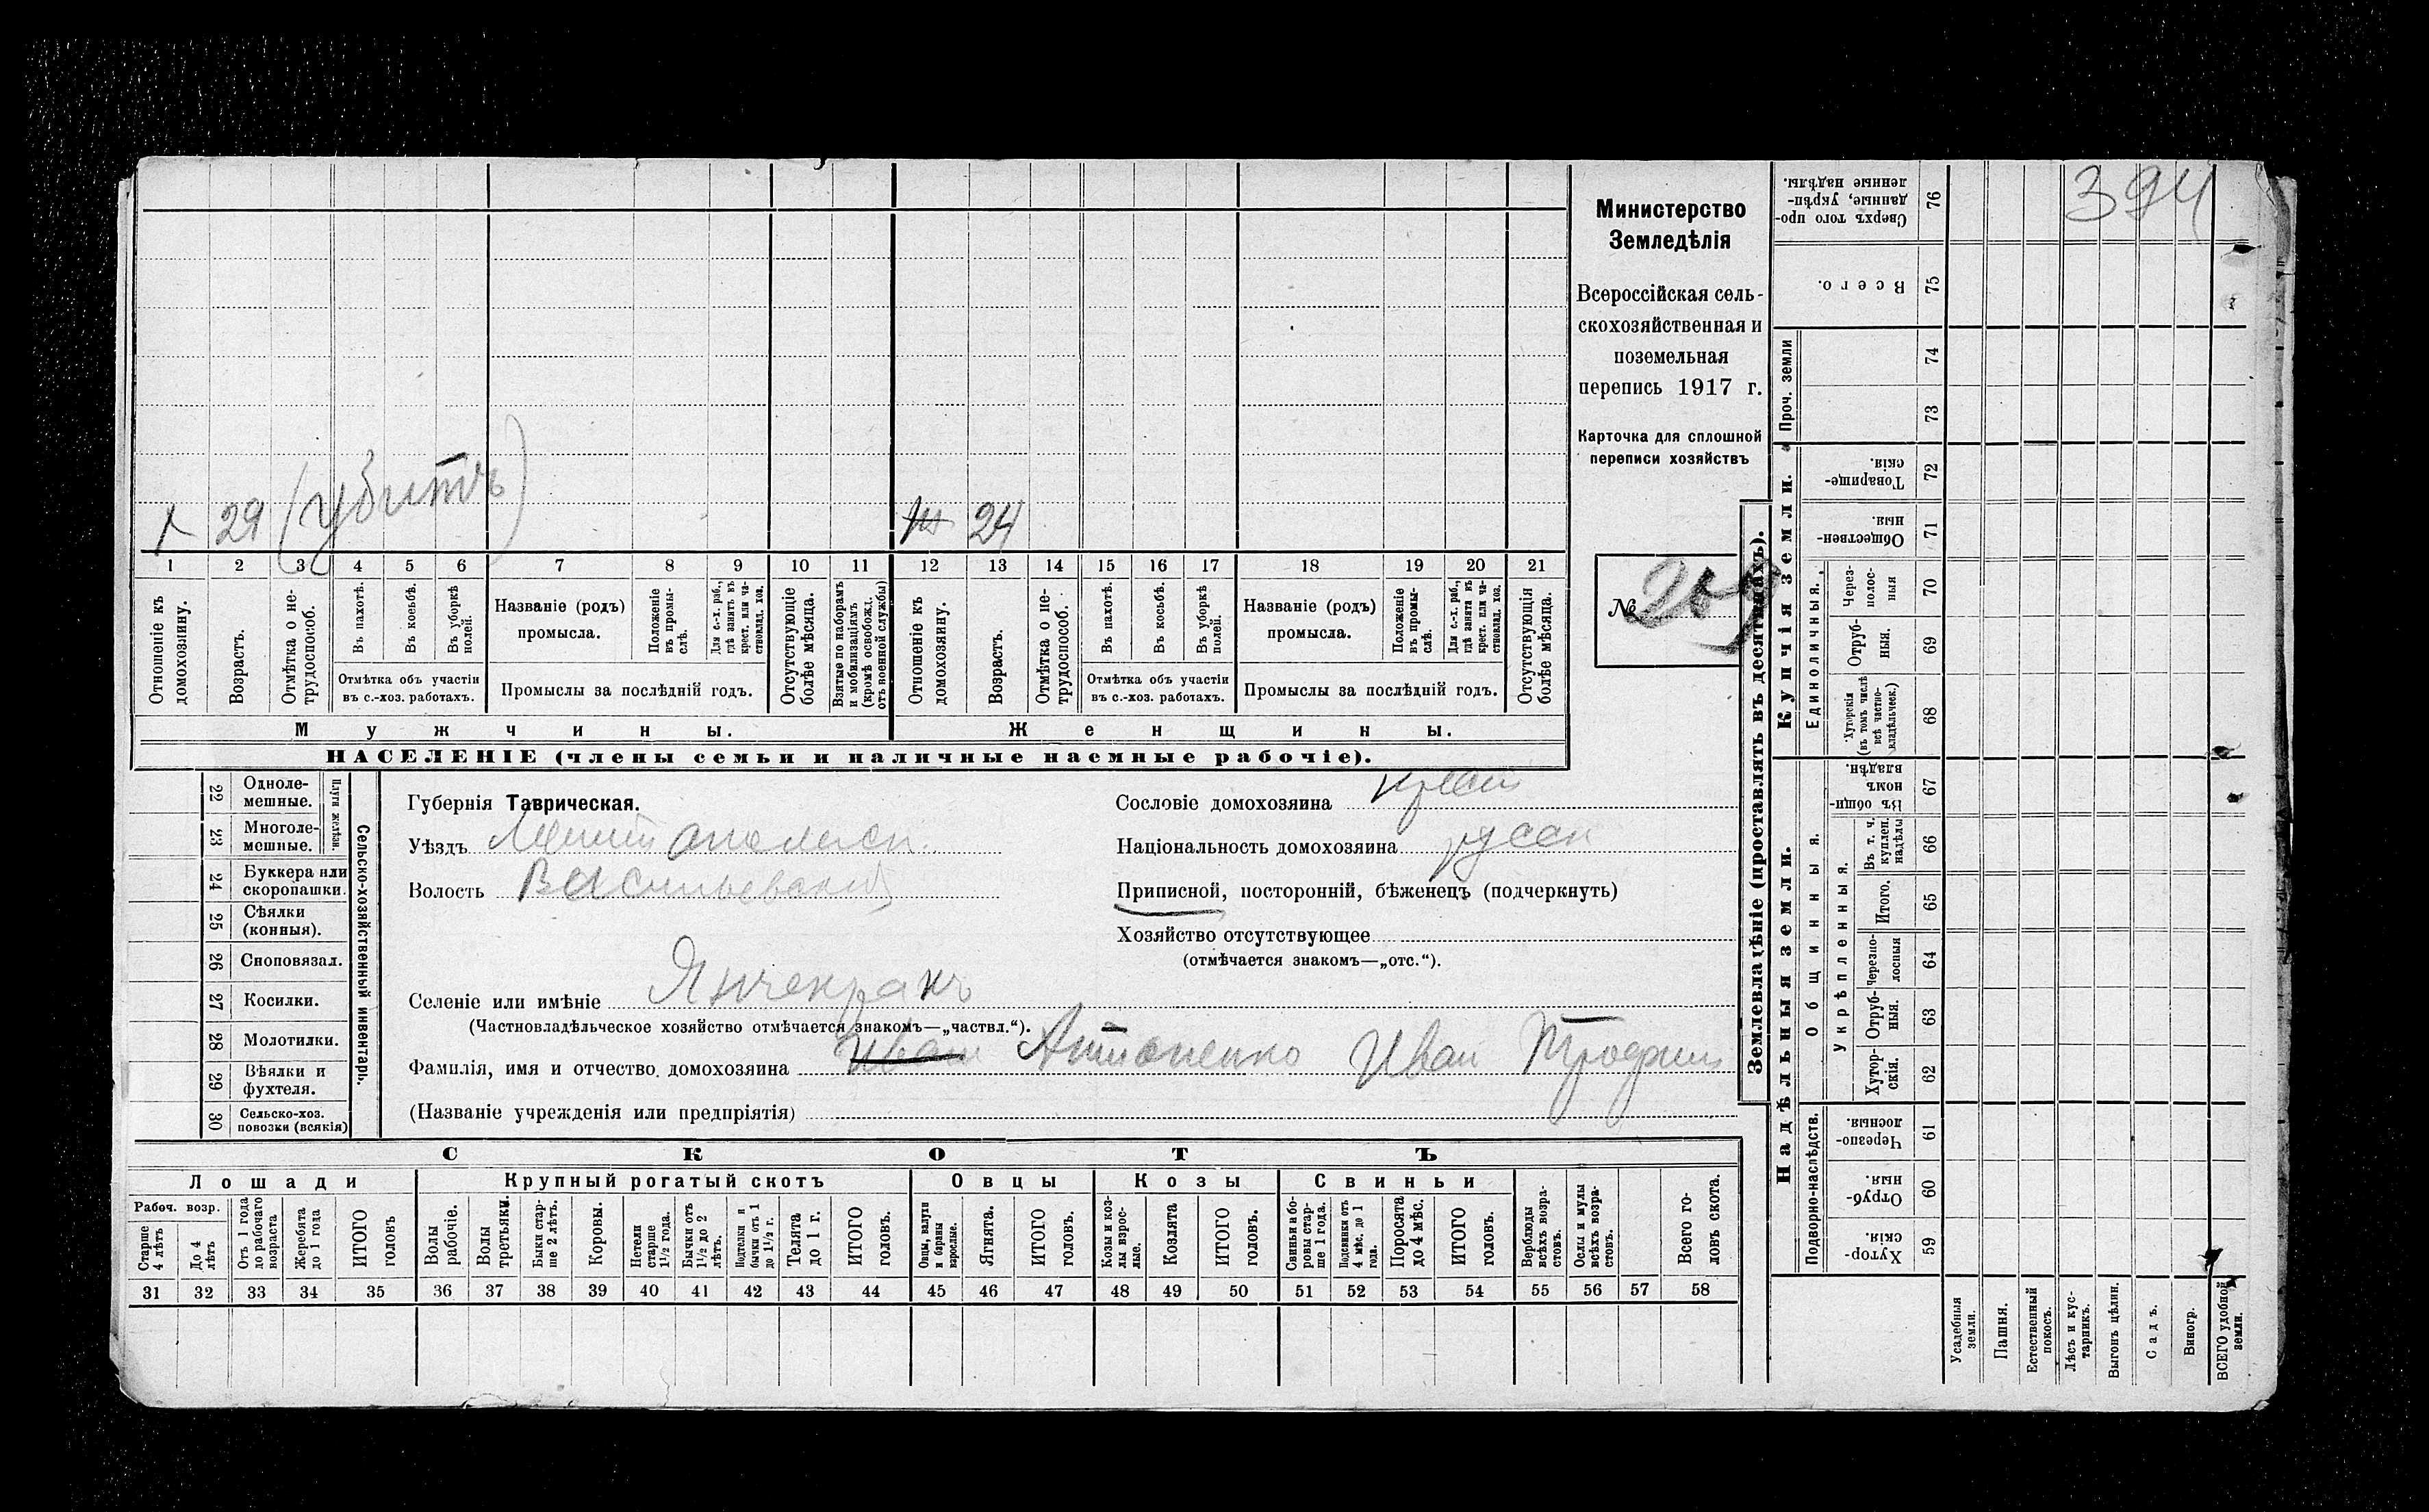 394
Министерство
Земледѣлія
Всероссійская сель-
скохозяйственная и
поземельная
перепись 1917 г.
Карточка для сплошной
переписи хозяйствъ
№
1 29 (убитъ) 24
1 2 3 4 5 6 7 8 9 10 11 12 13 14 15 16 17 18 19 20 21
Отношеніе къ домохозяину.
Возрастъ.
Отмѣтка о не-трудоспособ.
Въ пахотѣ.
Въ косьбѣ.
Въ уборкѣ полей.
Отмѣтка объ участіи
въ с.-хоз. работахъ.
Названіе (родъ)
промысла.
Положеніе въ промы-слѣ.
Для с.-х. раб., гдѣ занятъ въ крест. или ча-стновлад. хоз.
Промыслы за послѣдній годъ.
Отсутствующіе болѣе мѣсяца.
Взятые по наборамъ и мобилизаціямъ (кромѣ освобожд. отъ военной службы)
Отношеніе къ домохозяину.
Возрастъ.
Отмѣтка о не-трудоспособ.
Въ пахотѣ.
Въ косьбѣ.
Въ уборкѣ полей.
Отмѣтка объ участіи
въ с.-хоз. работахъ.
Названіе (родъ)
промысла.
Положеніе въ промы-слѣ.
Для с.-х. раб., гдѣ занята въ крест. или ча-стновлад. хоз.
Промыслы за послѣдній годъ.
Отсутствующія болѣе мѣсяца.
Мужчины.
Женщины.
НАСЕЛЕНІЕ (члены семьи и наличные наемные рабочіе).
22 Одноле-мешные.
23 Многоле-мешные.
Плуги желѣзн.
24 Буккера или скоропашки.
25 Сѣялки (конныя).
26 Сноповязал.
27 Косилки.
28 Молотилки.
29 Вѣялки и фухтеля.
30 Сельско-хоз. повозки (всякія)
Сельско-хозяйственный инвентарь.
Губернія Таврическая.
Уѣздъ Мелитопольск.
Волость Васильевской
Селеніе или имѣніе Янчекракъ
(Частновладѣльческое хозяйство отмѣчается знакомъ—„частвл.“).
Фамилія, имя и отчество домохозяина Иван Антоненко Иван Трофим
(Названіе учрежденія или предпріятія)
Сословіе домохозяина крест
Національность домохозяина русск
Приписной, посторонній, бѣженецъ (подчеркнуть)
Хозяйство отсутствующее
(отмѣчается знакомъ—„отс.“).
СКОТЪ
Лошади
Крупный рогатый скотъ
Овцы
Козы
Свиньи
Рабоч. возр.
Старше 4 лѣтъ
До 4 лѣтъ
Отъ 1 года до рабочаго возраста
Жеребята до 1 года
ИТОГО головъ
Волы рабочіе.
Волы третьяки.
Быки стар-ше 2 лѣтъ.
Коровы.
Нетели старше 1½ года.
Бычки отъ 1½ до 2 лѣтъ.
Подтелки и бычки отъ 1 до 1½ г.
Телята до 1 г.
ИТОГО головъ.
Овцы, валухи и бараны взрослые.
Ягнята.
ИТОГО головъ.
Козы и коз-лы взрос-лые.
Козлята
ИТОГО головъ.
Свиньи и бо-ровы стар-ше 1 года.
Подсвинки отъ 4 мѣс. до 1 года.
Поросята до 4 мѣс.
ИТОГО головъ.
Верблюды всѣхъ возра-стовъ.
Ослы и мулы всѣхъ возра-стовъ.
Всего го-ловъ скота.
31 32 33 34 35 36 37 38 39 40 41 42 43 44 45 46 47 48 49 50 51 52 53 54 55 56 57 58
Землевладѣніе (проставлять въ десятинахъ).
Купчія земли.
Надѣльныя земли.
Проч. земли
Единоличныя.
Общинныя.
Укрѣпленныя.
Подворно-наслѣдств.
Сверхъ того про-данные, укрѣп-ленные надѣлы. 76
Всего. 75
74
73
Товарище-скія. 72
Обществен-ныя. 71
Через-полос-ныя 70
Отруб-ныя. 69
Хуторскія (въ томъ числѣ всѣ частно-владѣльческ.) 68
Въ общи-номъ владѣн. 67
Въ т. ч. куплен. надѣлы 66
Итого. 65
Черезпо-лосныя 64
Отруб-ныя. 63
Хутор-скія. 62
Черезпо-лосныя. 61
Отруб-ныя. 60
Хутор-скія. 59
Усадебныя земли.
Пашня.
Естественный покосъ.
Лѣсъ и кус-тарникъ.
Выгонъ цѣлин.
Садъ.
Виногр.
ВСЕГО удобной земли.